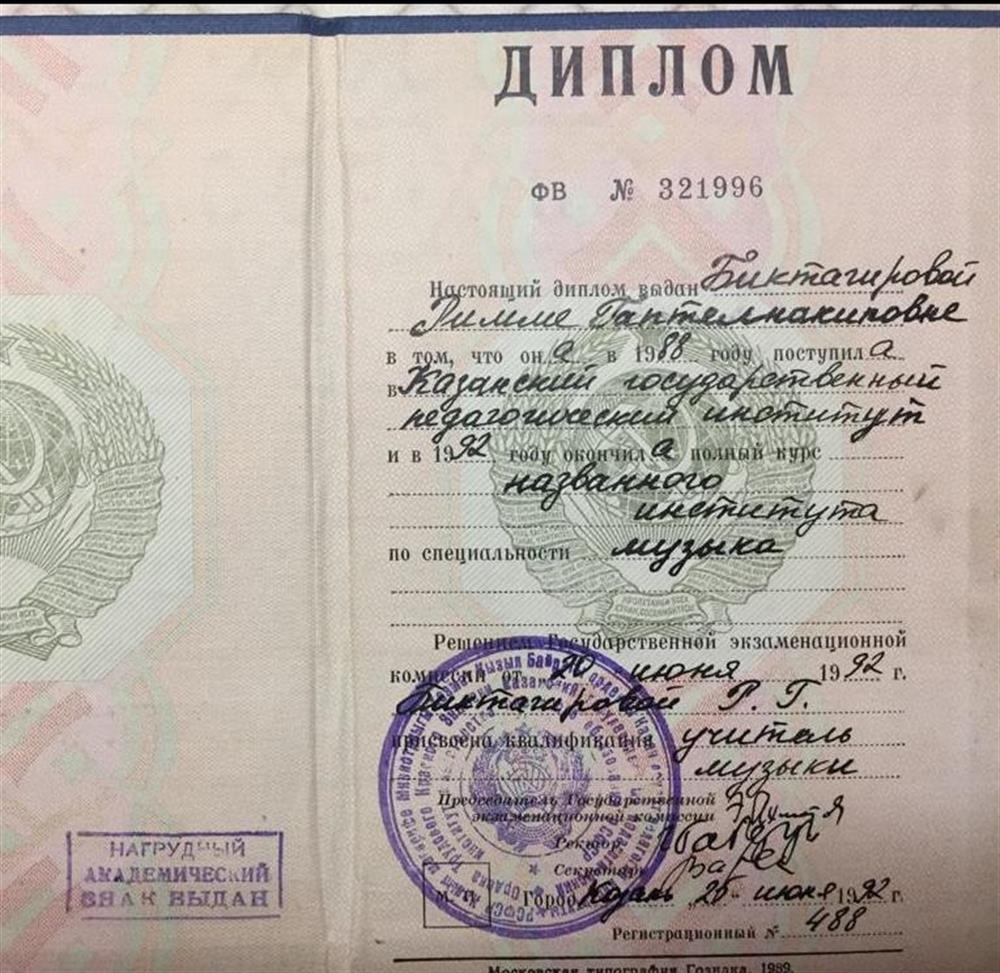 ДИПЛОМ
ФВ № 321996
Настоящий диплом выдан Биктагировой
Римме Гаптелнакиповне
в том, что он а в 1988 году поступил а
в Казанский государственный
педагогический институт
и в 1992 году окончил а полный курс
названного
института
по специальности музыка
Решением Государственной экзаменационной
комиссии от 20 июня 1992 г.
Биктагировой Р. Г.
присвоена квалификация учитель
музыки
Председатель Государственной
экзаменационной комиссии
Ректор
Секретарь
М. П.
Город Казань 25 июня 1992 г.
Регистрационный № 488
Московская типография Гознака. 1989.
НАГРУДНЫЙ
АКАДЕМИЧЕСКИЙ
ЗНАК ВЫДАН